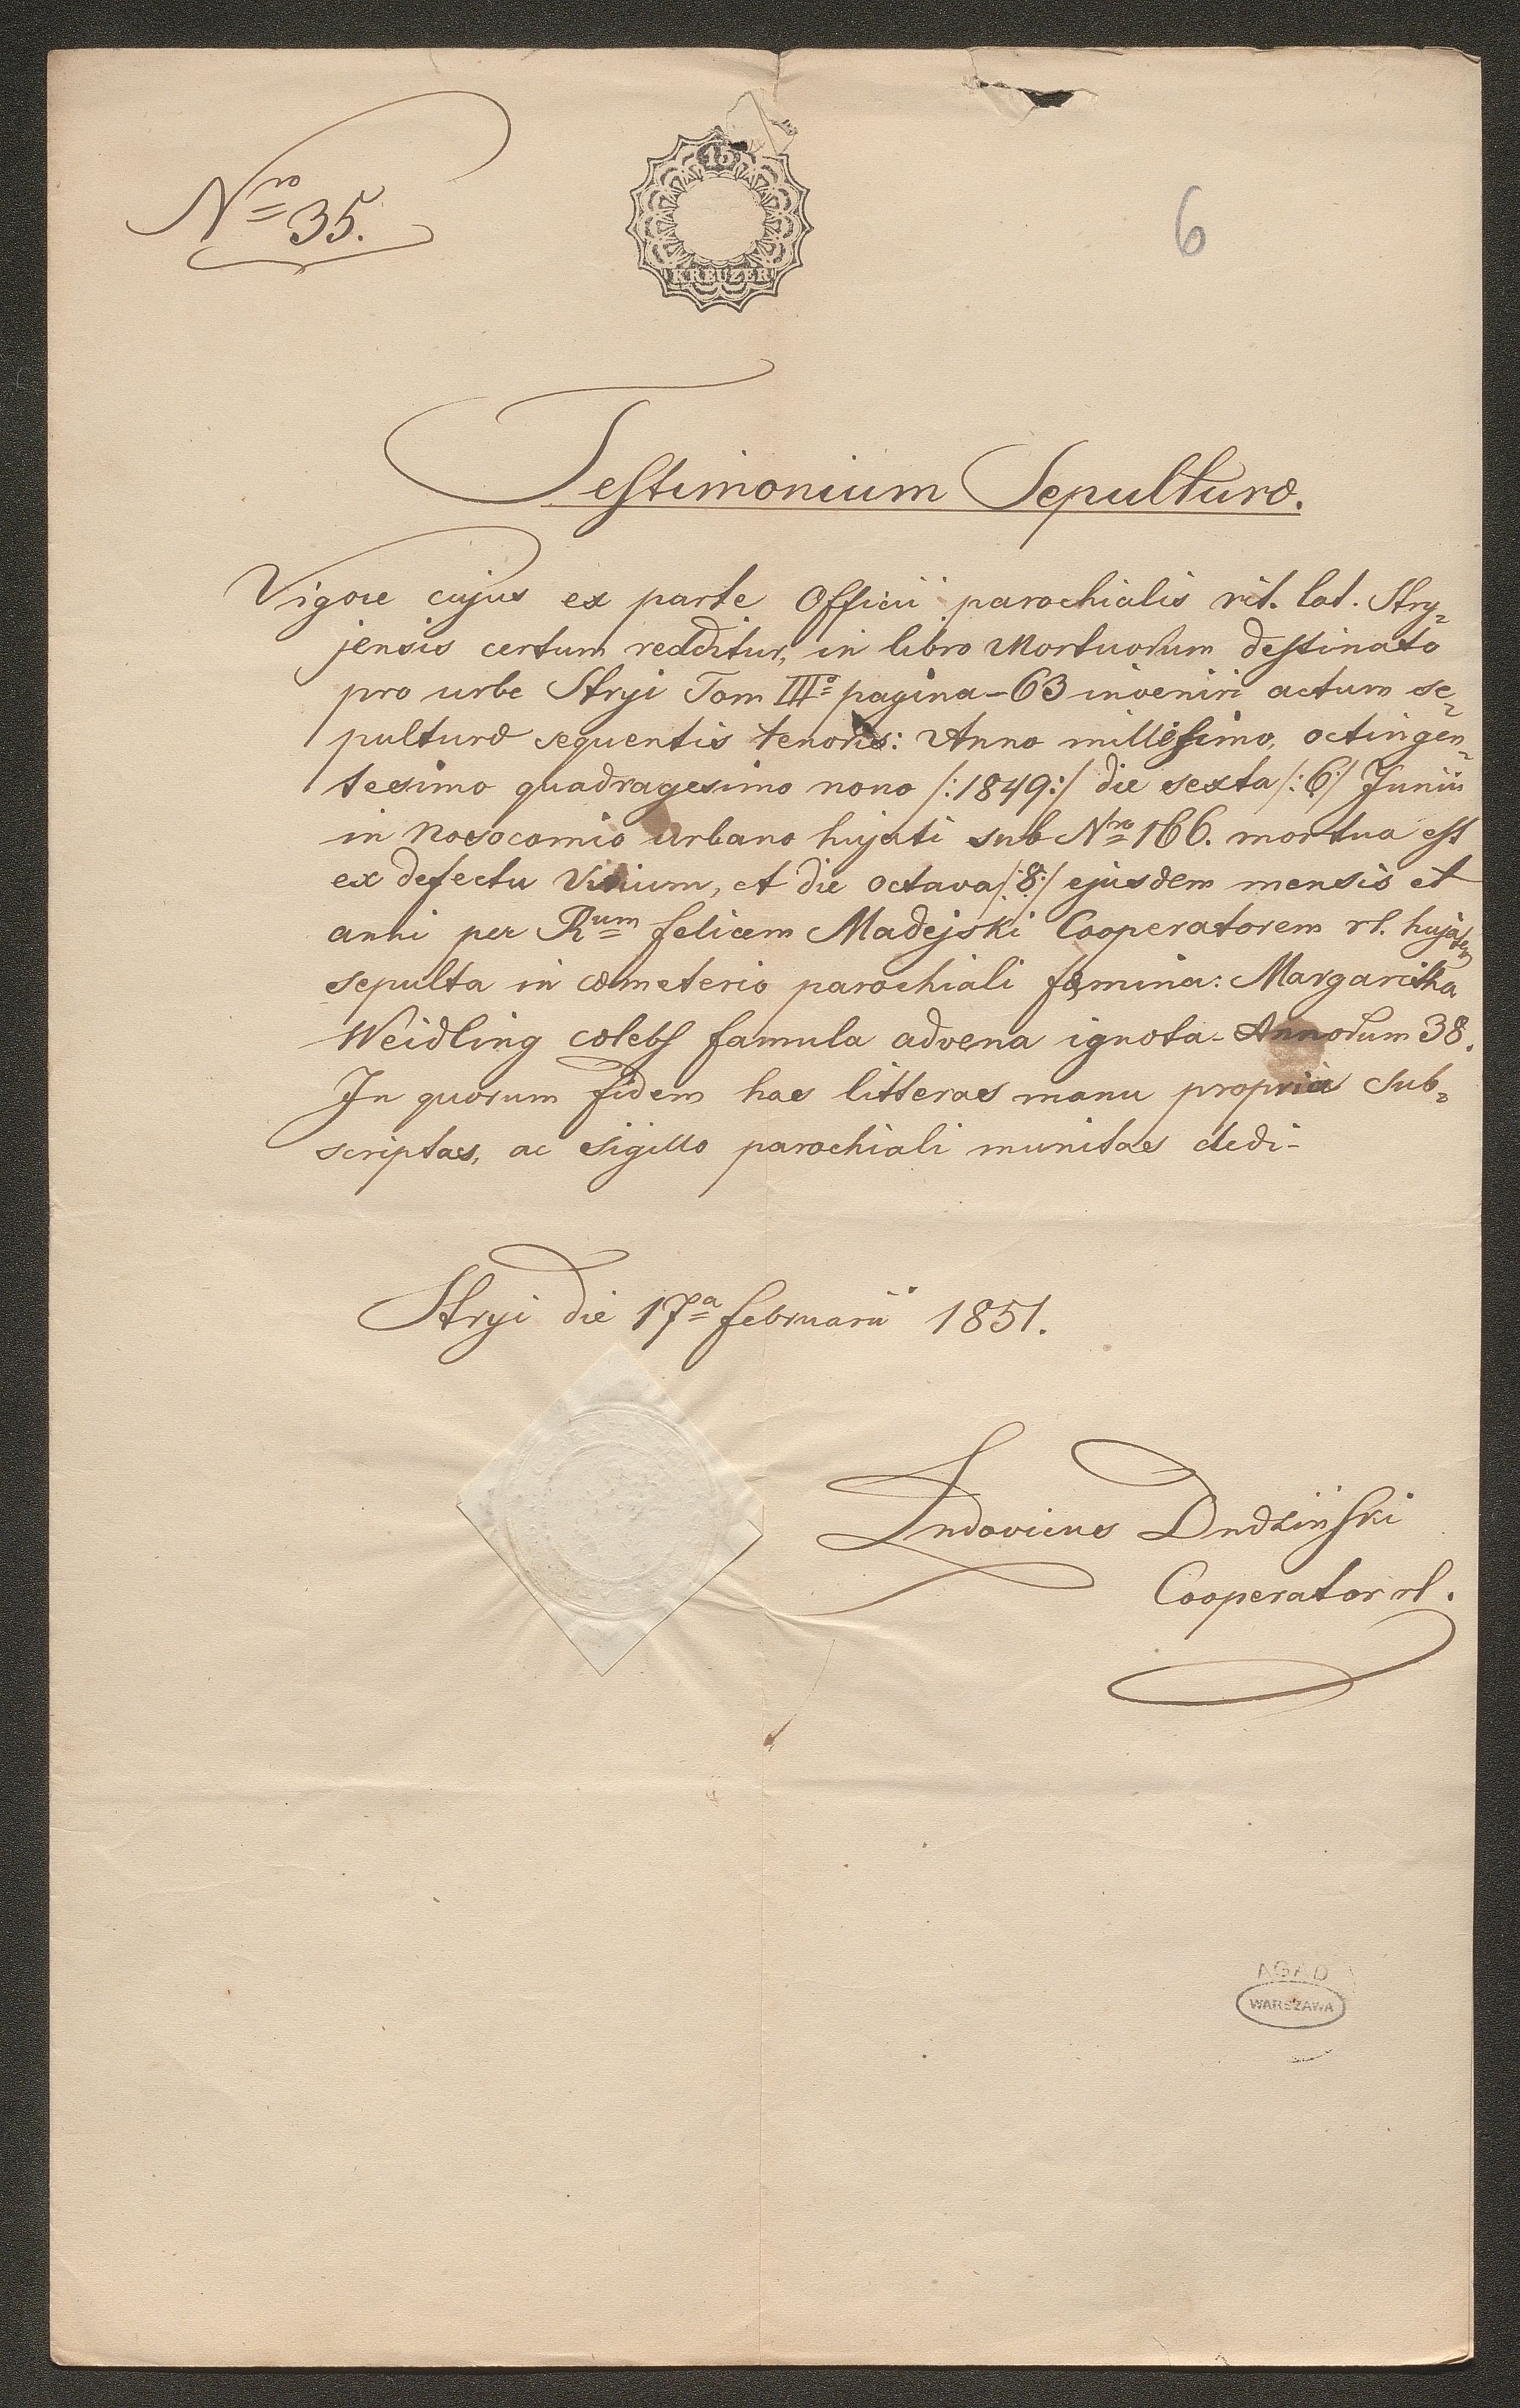 Nro 35.
15
KREUZER
6
Testimonium Sepulturæ.
Vigore cujus ex parte Officii parochialis rit. lat. Stry=
jensis certum redditur, in libro Mortuorum destinato
pro urbe Stryi Tom IIIo pagina-63 inveniri actum se=
pulturæ sequentis tenoris: Anno millesimo, octingen=
tesimo quadragesimo nono /:1849:/ die sexta /:6:/ Junii
in nosocomio urbano hujati sub Nro 166. mortua est
ex defectu Virium, et die octava /:8:/ ejusdem mensis et
anni per Rum felicem Madejski Cooperatorem rl. hujatem
sepulta in cœmeterio parochiali fæmina: Margaritha
Weidling cœlebs famula advena ignota - Annorum 38.
In quorum fidem has litteras manu propria sub=
scriptas, ac sigillo parochiali munitas dedi-
Stryi die 17a februarii 1851.
Ludovicus Dudziński
Cooperator rl.
AGAD
WARSZAWA